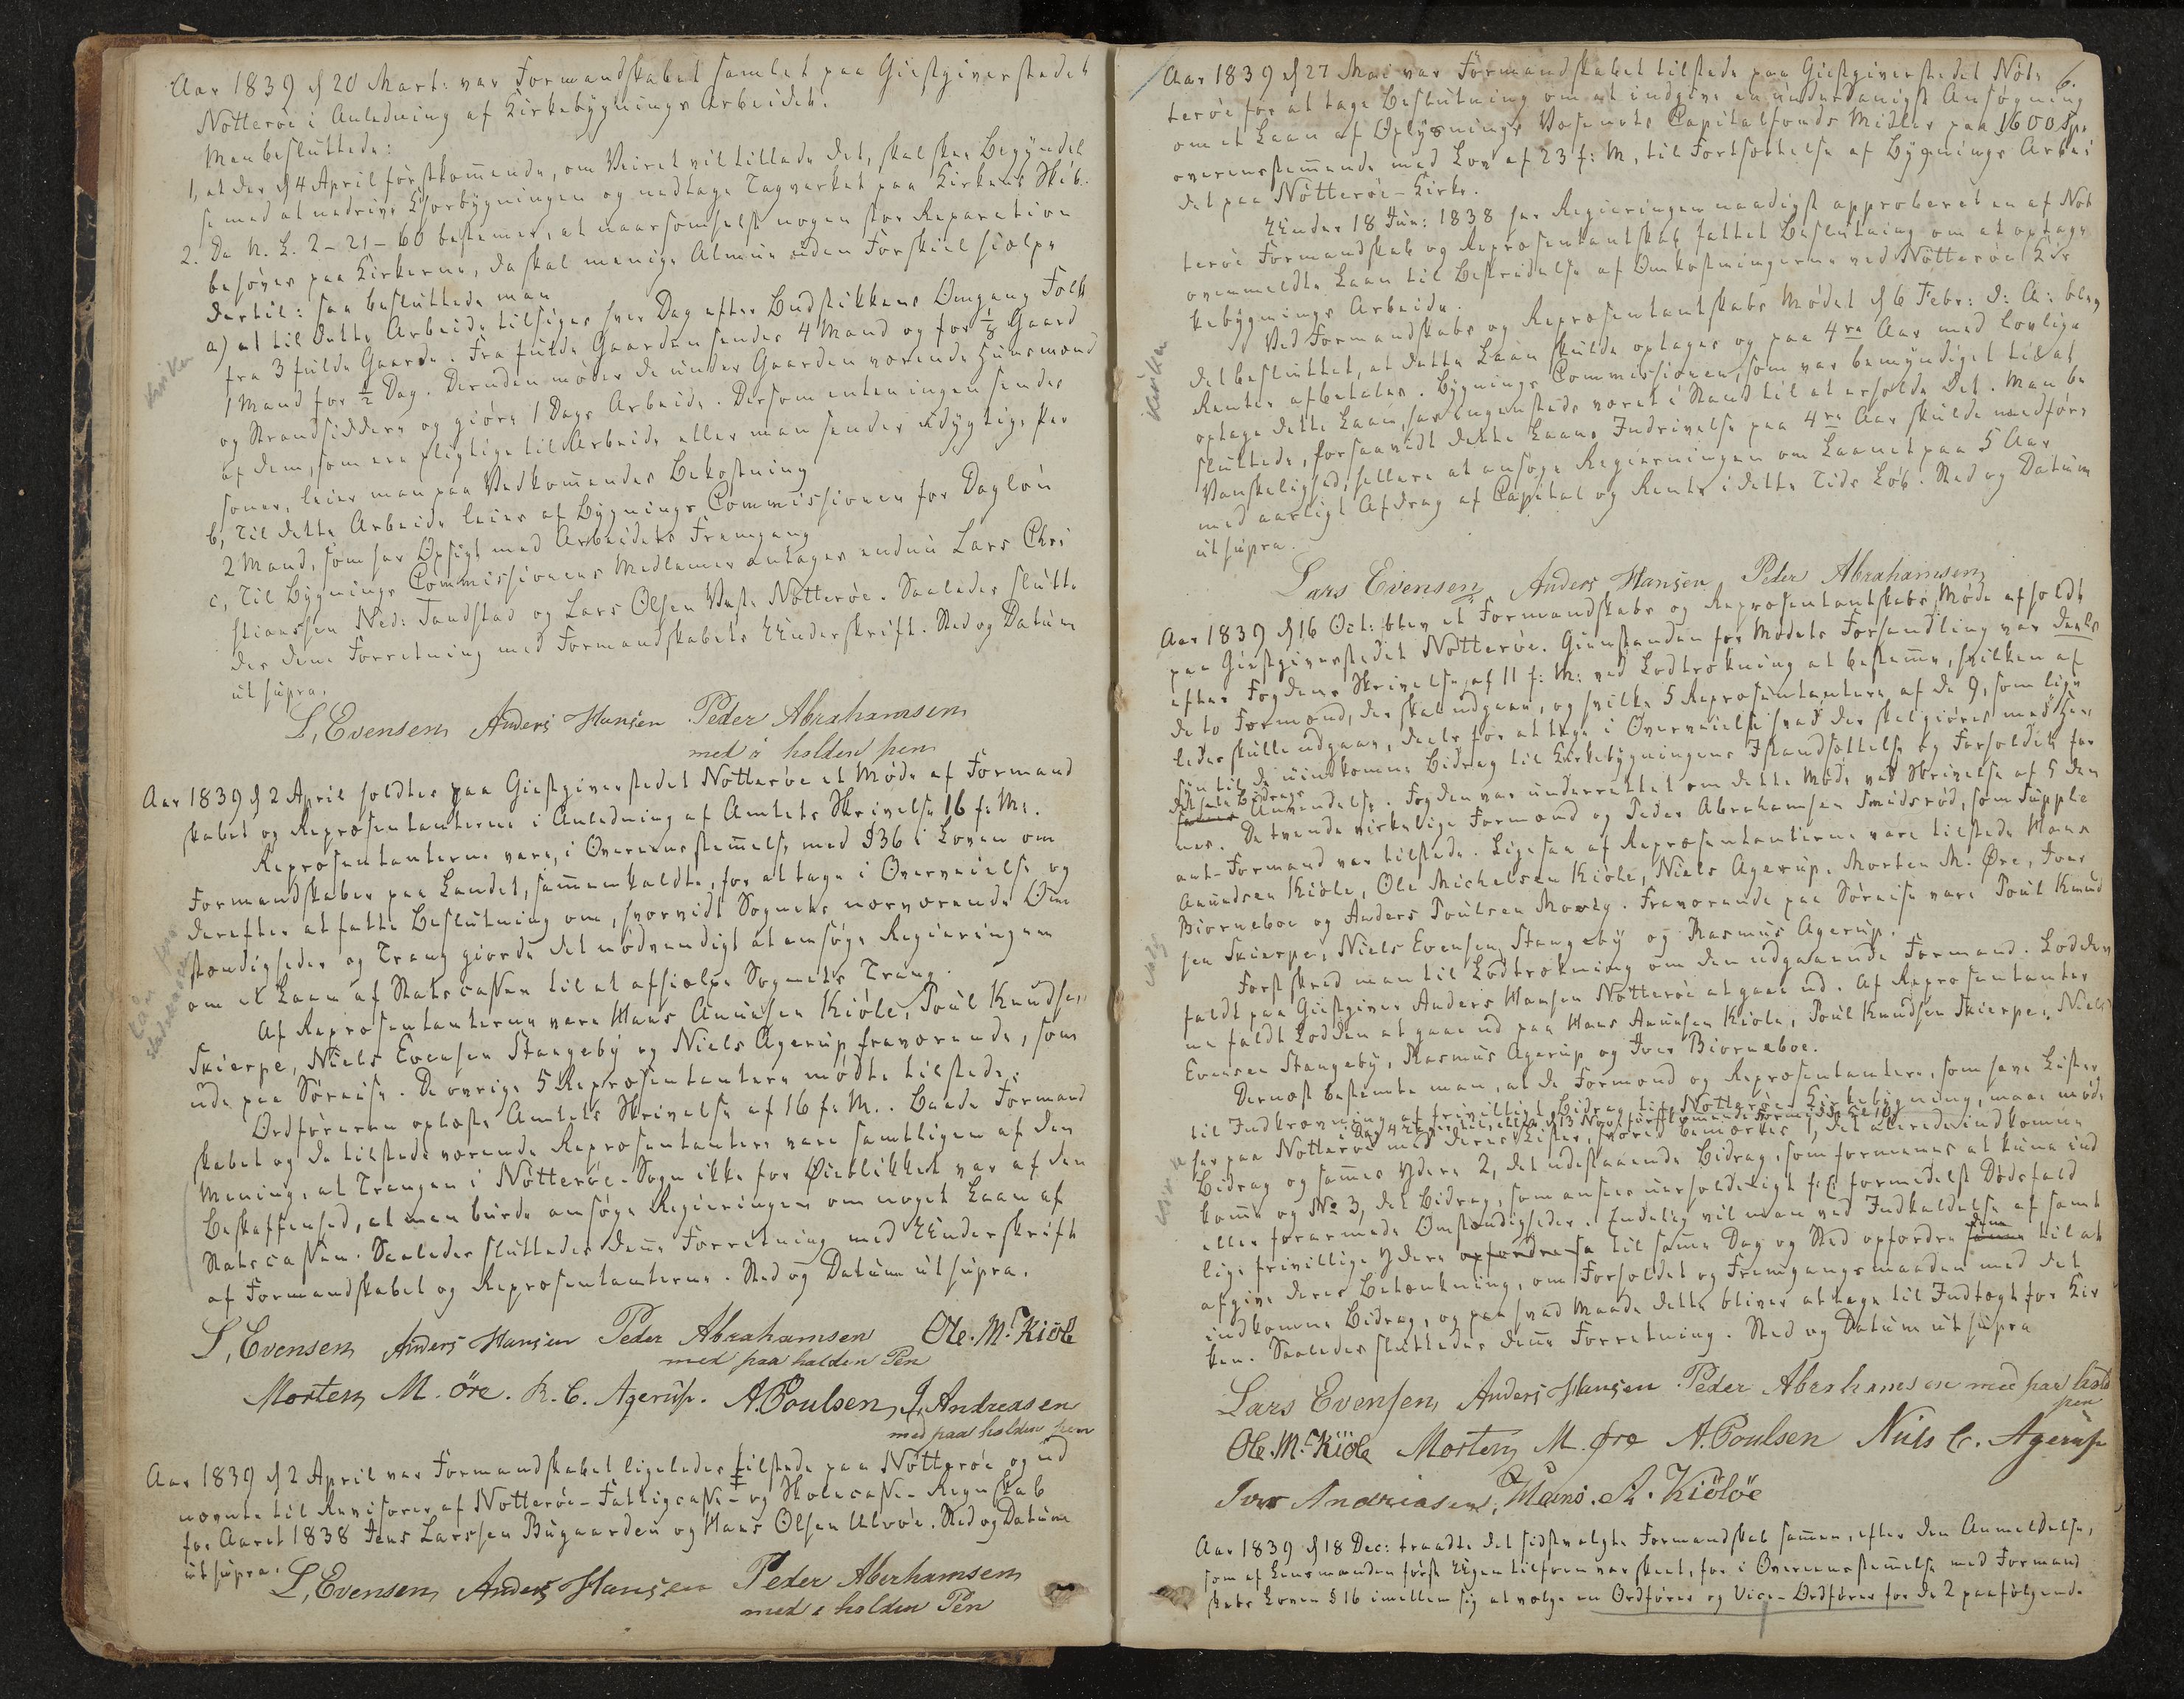 Aar 1839 d 20 Mart: var Formandskabet samlet paa Giestgiverstedet
Nøtterøe i Anledning af Kirkebygnings Arbeidet.
Man besluttede:
1, at der d 4 April førstkom̄ende, om Veiret vil tillade det, skal skee Begyndel
se med at nedrive Chorbygningen og nedtage Tagverket paa Kirkens Skib.
2. Da N. L. 2-21-60 bestem̄er, at naarsomhelst nogen stor Reparation
behøves paa Kirkerne, da skal menige Almue uden Forskiel hielpe
dertil: saa besluttede man
a) at til dette Arbeide tilsiges hver Dag efter Budstikkens Omgang Folk
fra 3 fulde Gaarde. Fra fulde Gaarden sendes 4 Mand og for ⅛ Gaard
1 Mand for ½ Dag. Desuden møder de under Gaarden værende Huusmænd
og Strandsiddere og giøre 1 Dags Arbeide. Dersom enten ingen sendes
af dem, som ere pligtige til Arbeide eller man sender udygtige Per
soner, leier man paa Vedkom̄endes Bekostning
b, Til dette Arbeide leies af Bygnings Commissionen for Dagløn
2 Mand, som har Opsigt med Arbeidets Fremgang
c, Til Bygnings Commissionens Medlemer antages endnu Lars Chri
stianssen Ned: Tandstad og Lars Olsen Vestre Nøtterøe. Saaledes slutte
des den̄e Forretning med Formandskabets Underskrift. Sted og Datum
ut supra.
L, Evensen Anders Hansen Peder Abrahamsen
med i holden pen
kirken
Aar 1839 d 2 April holdtes paa Giestgiverstedet Nøtterøe et Møde af Formand
skabet og Repræsentanterne i Anledning af Amtets Skrivelse 16 f: M:.
Repræsentanterne vare, i Overeensstem̄else med § 36 i Loven om
Formandskaber paa Landet, sam̄enkaldte, for at tage i Overveielse og
derefter at fatte Beslutning om, hvorvidt Sognets nærværende Om
stændigheder og Trang giorde det nødvendigt at ansøge Regieringen
om et Laan af Statscassen til at afhielpe Sognets Trang.
Laan fra
statscassen
Af Repræsentanterne vare Hans Anunsen Kiøle, Poul Knudsen
Skierpe, Niels Evensen Stangeby og Niels Agerup fraværende, som
ude paa Søreise. De øvrige 5 Repræsentantere mødte tilstede:
Ordføreren oplæste Amtets Skrivelse af 16 f: M.. Baade Formand
skabet og de tilstede værende Repræsentantere vare samtligen af den
Mening, at Trangen i Nøtterøe-Sogn ikke for Øieblikket var af den
Beskaffenhed, at man burde ansøge Regieringen om noget Laan af
Statscassen. Saaledes sluttedes den̄e Forretning med Underskrift
af Formandskabet og Repræsentanterne. Sted og Datum ut supra.
L, Evensen Anders Hansen Peder Abrahamsen Ole. M. Kiøle
med paa holden Pen
Morten M. Øre. N. C. Agerup. A. Poulsen, I, Andreasen
med paa holden pen
Aar 1839 d 2 April var Formandskabet ligeledes tilstede paa Nøtterøe og ud
nævnte til Revisorer af Nøtterøe-Fattigcasse- og Skolecasse-Regnskab
for Aaret 1838 Jens Larssen Bugaarden og Hans Olsen Ulvøe. Sted og Datum
ut supra.
L, Evensen Anders Hansen Peder Aberhamsen
med i holden Pen
6.
Aar 1839 d 27 Mai var Formandskabet tilstede paa Giestgiverstedet Nøt-
terøe for at tage Beslutning om at indgive en underdanigst Ansøgning
om et Laan af Oplysnings Væsenets Capitalfonds Midler paa 1600 Spd
overenstem̄ende med Lov af 23 f: M, til Fortsættelse af Bygnings Arbei
det paa Nøtterøe-Kirke.
Under 18 Jun: 1838 har Regieringen naadigst approberet en af Nøt
terøe Formandskab og Repræsentantskab fattet Beslutning om at optage
ovenmeldte Laan til Bestridelse af Omkostningerne ved Nøtterøe Kir
kebygnings Arbeide.
Ved Formandskabs og Repræsentantskabs Mødet d 6 Febr: d: A: blev
det besluttet, at dette Laan skulde optages og paa 4re Aar med lovlige
Renter afbetales. Bygnings Commissionen, som var bemyndiget til at
optage dette Laan, har ingensteds været i Stand til at erholde det. Man be
sluttede, forsaavidt dette Laans Inddrivelse paa 4re Aar skulde medføre
Vanskelighed, hellere at ansøge Regieringen om Laanet paa 5 Aar
med aarligt Afdrag af Capital og Rente i dette Tids Løb. Sted og Datum
ut supra.
kirken
Lars Evensen Anders Hansen Peder Abrahamsen
Aar 1839 d 16 Oct: blev et Formandskabs og Repræsentantskabs Møde afholdt
paa Giestgiverstedet Nøtterøe. Gienstanden for Mødets Forhandling var deels
efter Fogdens Skrivelse af 11 f: M: ved Lodtrækning at bestem̄e, hvilken af
de to Formænd, der skal udgaae, og hvilke 5 Repræsentantere af de 9, som lige
ledes skulle udgaae, deels for at tage i Overveielse hvad der skal giøres med Hen
syn til de uindkomne Bidrag til Kirkebygningens Istandsættelse og Forholdet for
det hele Bidrags
Anvendelse. Fogden var underrettet om dette Møde ved Skrivelse af 5 den
nes. De tvende virkelige Formænd og Peder Abrahamsen Smidsrød, som Supple
ant-Formand var tilstede. Ligesaa af Repræsentanterne vare tilstede Hans
Anundsen Kiøle, Ole Michelsen Kiøle, Niels Agerup, Morten M. Øre, Iver
Biørneboe og Anders Poulsen. Fraværende paa Søreise vare Poul Knud
sen Skierpe, Niels Evensen Stangeby og Rasmus Agerup.
valg
Først skred man til Lodtrækning om den udgaaende Formand. Lodden
faldt paa Giestgiver Anders Hansen Nøtterøe at gaae ud. Af Repræsentanter
ne faldt Lodden at gaae ud paa Hans Anunsen Kiøle, Poul Knudsen Skierpe, Niels
Evensen Stangeby, Rasmus Agerup og Iver Biørneboe.
Dernæst bestemte man, at de Formænd og Repræsentantere, som have Lister
til Indkrævning af frivilligt Bidrag til Nøtterøes Kirkebygning, maae møde
her paa Nøtterøe med deres Lister, hvored bemærkes 1, det allerede indkomne
Bidrag og sam̄es Ydere 2, det udestaaende Bidrag, som formenes at kune ind
kom̄e og No 3, det Bidrag, som ansees uerholdeligt f: E: formedelst Dødsfald
eller forarmede Omstændigheder. Endelig vil man ved Indkaldelse af samt
lige frivillige Ydere til sam̄e Dag og Sted opfordre dem til at
afgive deres Betænkning, om Forholdet og Fremgangsmaaden med det
indkomne Bidrag, og paa hvad Maade dette bliver at tage til Indtægt for Kir
ken. Saaledes sluttedes den̄e Forretning. Sted og Datum ut supra
Lars Evensen Anders Hansen Peder Abrahamsen med paa hold
pen
Ole. M. Kiøle Morten M. Øre A. Poulsen Niels C. Agerup
Iver Andreasen, Hans. A. Kiøløe
Aar 1839 d 18 Dec: traadte det sidstvalgte Formandskab sam̄en, efter den Anmeldelse,
som af Lensmanden først Ugen tilforn var skeet, for i Overeensstem̄else med Formand
skabs Loven § 16 imellem sig at vælge en Ordfører og Vice-Ordfører for de 2 paafølgende